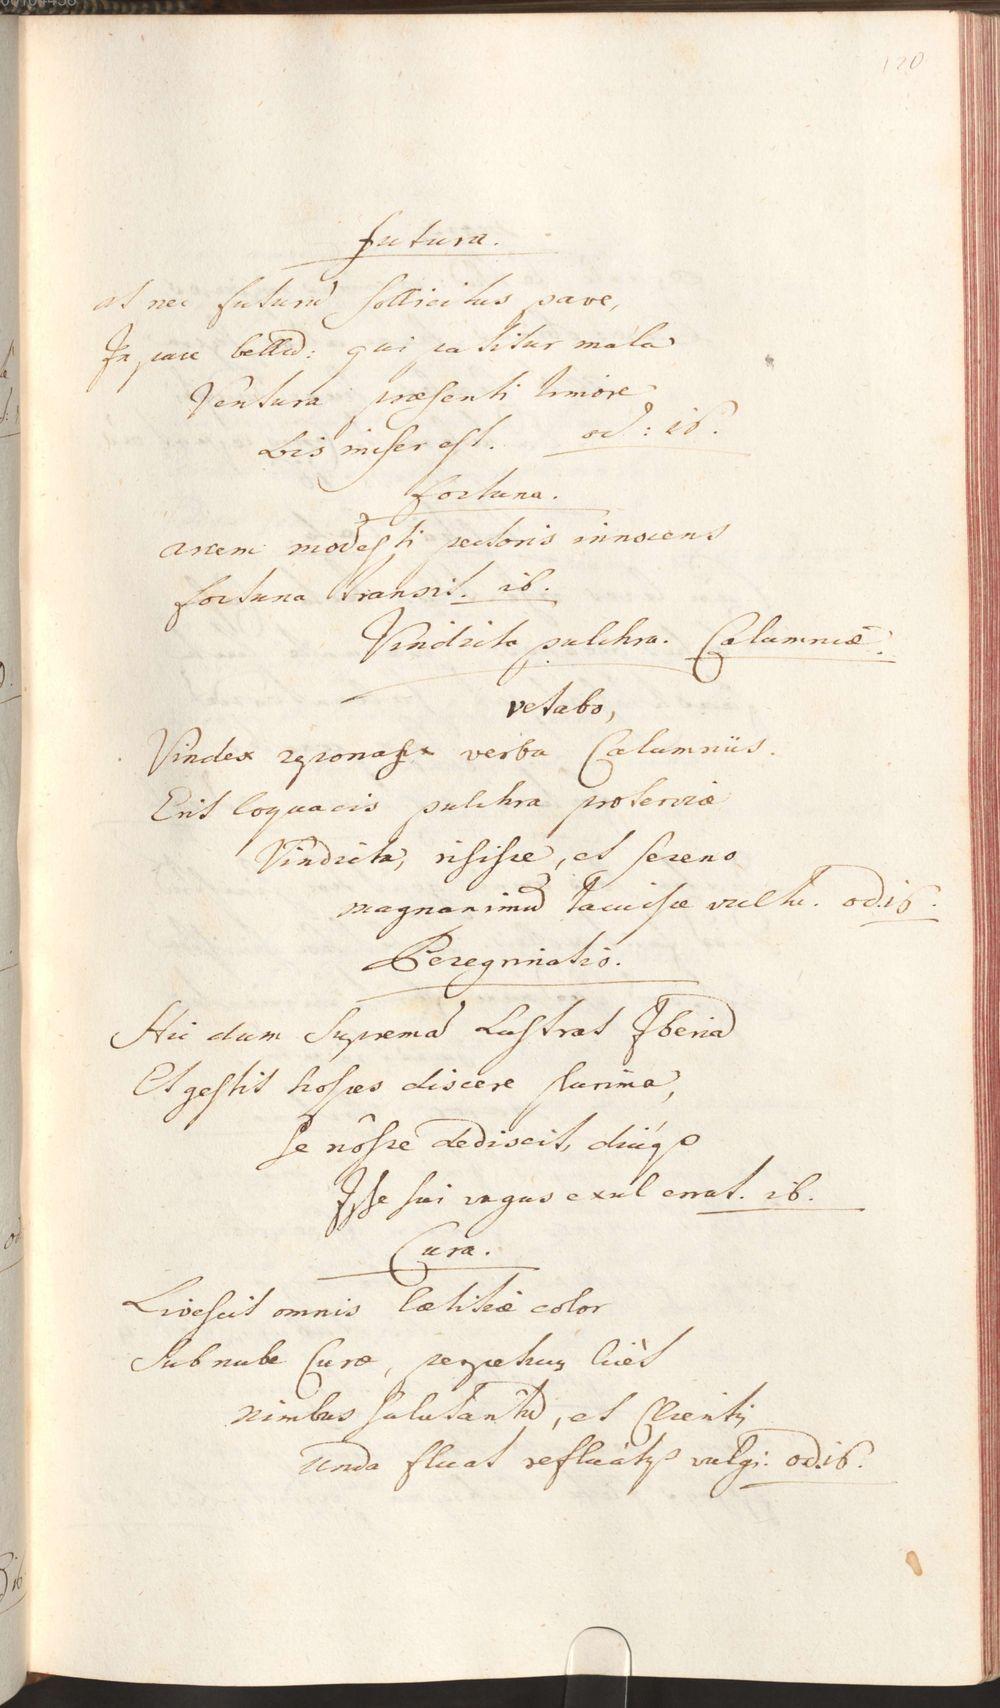 120
Futura.
at nec futurū sollicitus pave,
In pace bellū: qui patitur mala
Ventura præsenti timore
Bis miser est. od: ib.
Fortuna.
arcem modesti pectoris innocens
fortuna transit. ib.
Vindicta pulchra. Calumniæ.
vetabo,
Vindex reponas verba Calumniis.
Erit loquacis pulchra proterviæ
Vindicta, risisse, et sereno
magnanimū tacuisse vultu. od. ib.
Peregrinatio.
Hic dum supremā Lustrat Iberiā
Et gestit hospes discere plurima,
Se nôsse dediscit, diúq
Ipse sui vagus exul errat. ib.
Cura.
Livescit omnis lætitiæ color
Sub nube Curæ, perpetuus licèt
nimbus salutantū, et Clientis
unda fluat refluátq vulgi. od. ib.